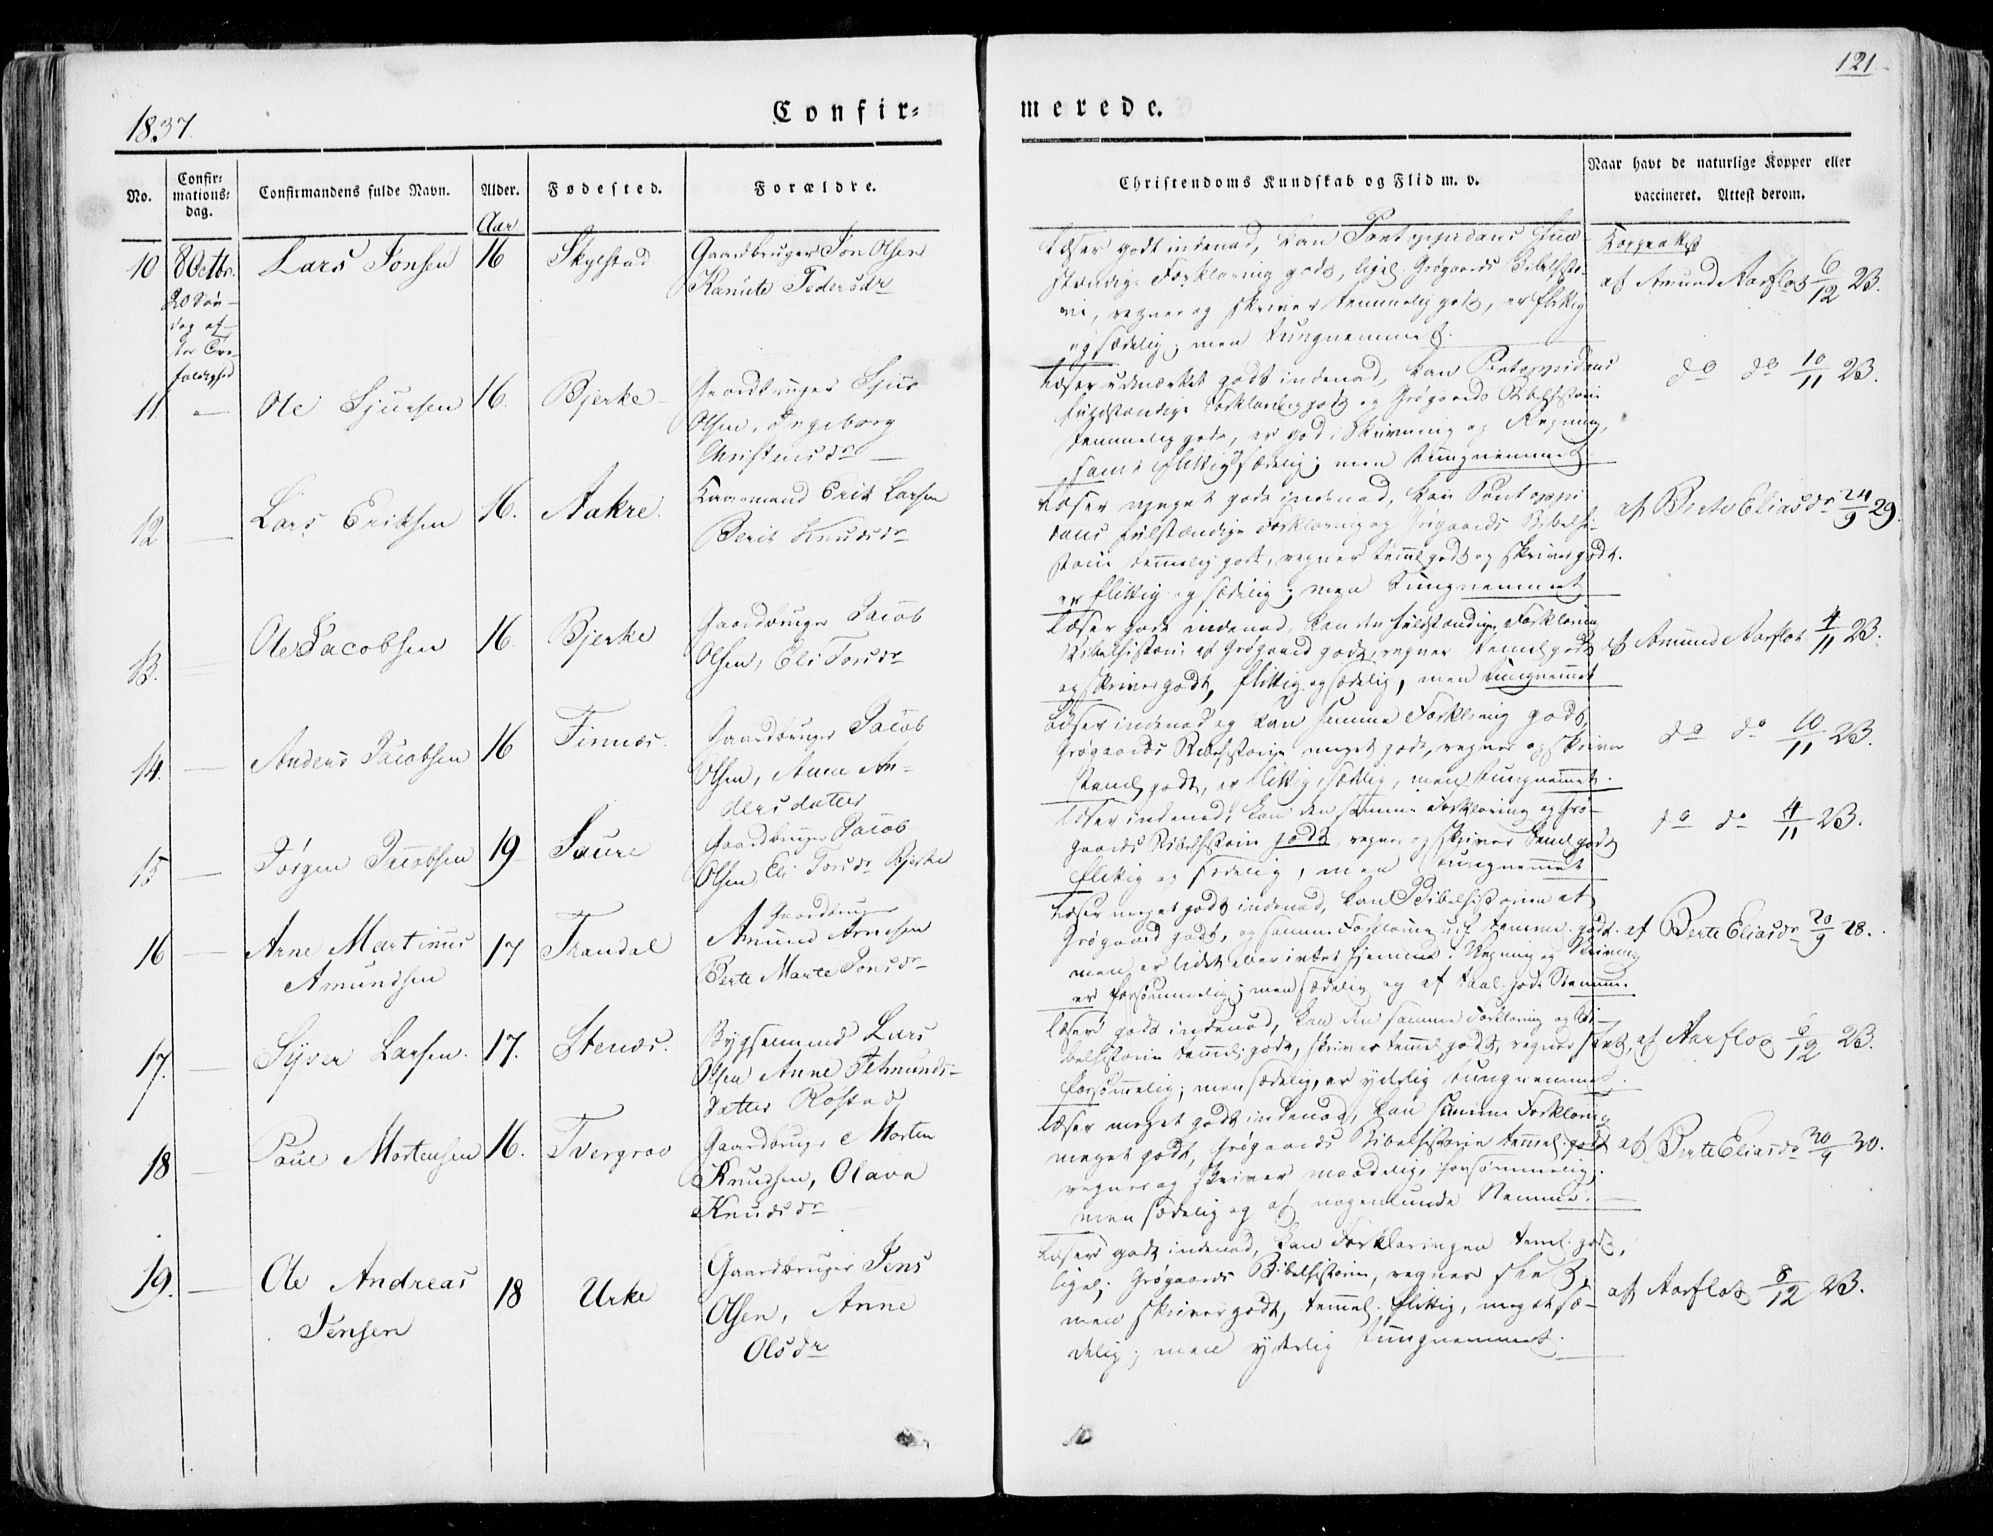 121
1837.
Confir=
merede.
No.
Confir=
mations=
dag.
Confirmandens fulde Navn.
Alder.
Fødested.
Forældre.
Christendoms Kundskab og Flid m. v.
Naar havt de naturlige Kopper eller
vaccineret. Attest derom.
Aar
10 8 Octbr. Lars Jonsen 16 Skylstad
20 Søn-
dag ef-
ter Tre-
foldighed
Gaardbruger Jon Olsen
Pedersdr
læser godt indenad, kan Pontoppidans
Forklaring godt, ligel. Grøgaards Bibelhisto-
rie, regner og skriver temmelig godt, er flittig
og sædelig; men tungnemmet.
Koppeattest
af Amund Aarflot 6/12 23.
11. – Ole Sjursen 16. Bjerke
Gaardbruger Sjur
Olsen, Ingeborg
Christensdr
læser udmærket godt indenad, kan Pontoppidans
fuldstændige Forklaring godt og Grøgaards Bibelhistorie
temmelig godt, er god i Skrivning og Regning,
samt flittig og sædelig; men tungnemmet.
do do 10/11 23.
12 – Lars Eriksen 16. Aakre.
Erik Larsen
Berit Knudsdr
læser meget godt indenad, kan Pontoppi-
dans fulstændige Forklaring og Grøgaards Bibelhi-
storie temmelig godt, regner teml. godt og skriver godt.
er flittig og sædelig; men tungnemmet
af Berte Eliasdr 24/9 29.
13. – Ole Jacobsen 16. Bjerke
Gaardbruger Jacob
Olsen, Eli Torsdr
læser godt indenad, kan den fuldstændige Forklaring
Bibelhistorie af Grøgaard godt, regner temel. godt
og skriver godt, flittig og sædelig, men tungnemet
af Amund Aarflot 4/11 23.
14. – Anders Jacobsen 16 Finnes.
Gaardbruger Jacob
Olsen, Anne An-
dersdatter
læser indenad og kan samme Forklaring godt,
Grøgaards Bibelhistorie meget godt, regner og skriver
temel. godt, er flittig, sædelig, men tungnemet.
do do 10/11 23.
15 – Jørgen Jacobsen 19 Saure
Gaardbruger Jacob
Olsen, Eli Torsdr Bjerke
læser indenad, kan den samme Forklaring og Grø-
gaards Bibelhistorie godt, regner og skriver temel. godt
flittig og sædelig, men tungnemmet
do do 4/11 23.
16 – Arne Martinus 17 Trandal
Amundsen
Gaardbruger
Amund Arnesen
Berte Marte Jonsdr
læser meget godt indenad, kan Bibelhistorien af
Grøgaard godt, og samme Forklaring temme. godt.
men er lidet eller intet hjemme i Regning og Skrivning
er forsømmelig; men sædelig og af taal. gode Nemme.
af Berte Eliasdr 20/9 28.
17. – Syver Larsen. 17. Stenes.
Bygselmand Lars
Olsen Anne
datter Røstad
læser godt indenad, kan den samme Forklaring og Bi-
belhistorie temmelig godt, skriver temel. godt, regner slet,
forsømelig; men sædelig, er yderlig tungnemmet.
af Aarflot 6/12 23.
18 – Paul Mortensen 16. Tvergrov
Gaardbruger Morten
Knudsen, Olava
Knudsdr
læser meget godt indenad, kan samme Forklaring
meget godt, Grøgaards Bibelhistorie temmel. godt
regner og skriver maadelig, forsømmelig;
men sædelig og af nogenlunde Nemme.
af Berte Eliasdr 30.
19. – Ole Andreas 18 Urke
Jensen
Gaardbruger Jens
Olsen, Anne
Olsdr
læser godt indenad, kan Forklaringen teml. godt,
ligel; Grøgaards Bibelhistorie, regner slet,
men skriver godt, temmel. flittig, meget sæ-
delig; men yderlig tungnemmet.
af Aarflot 8/12 23.